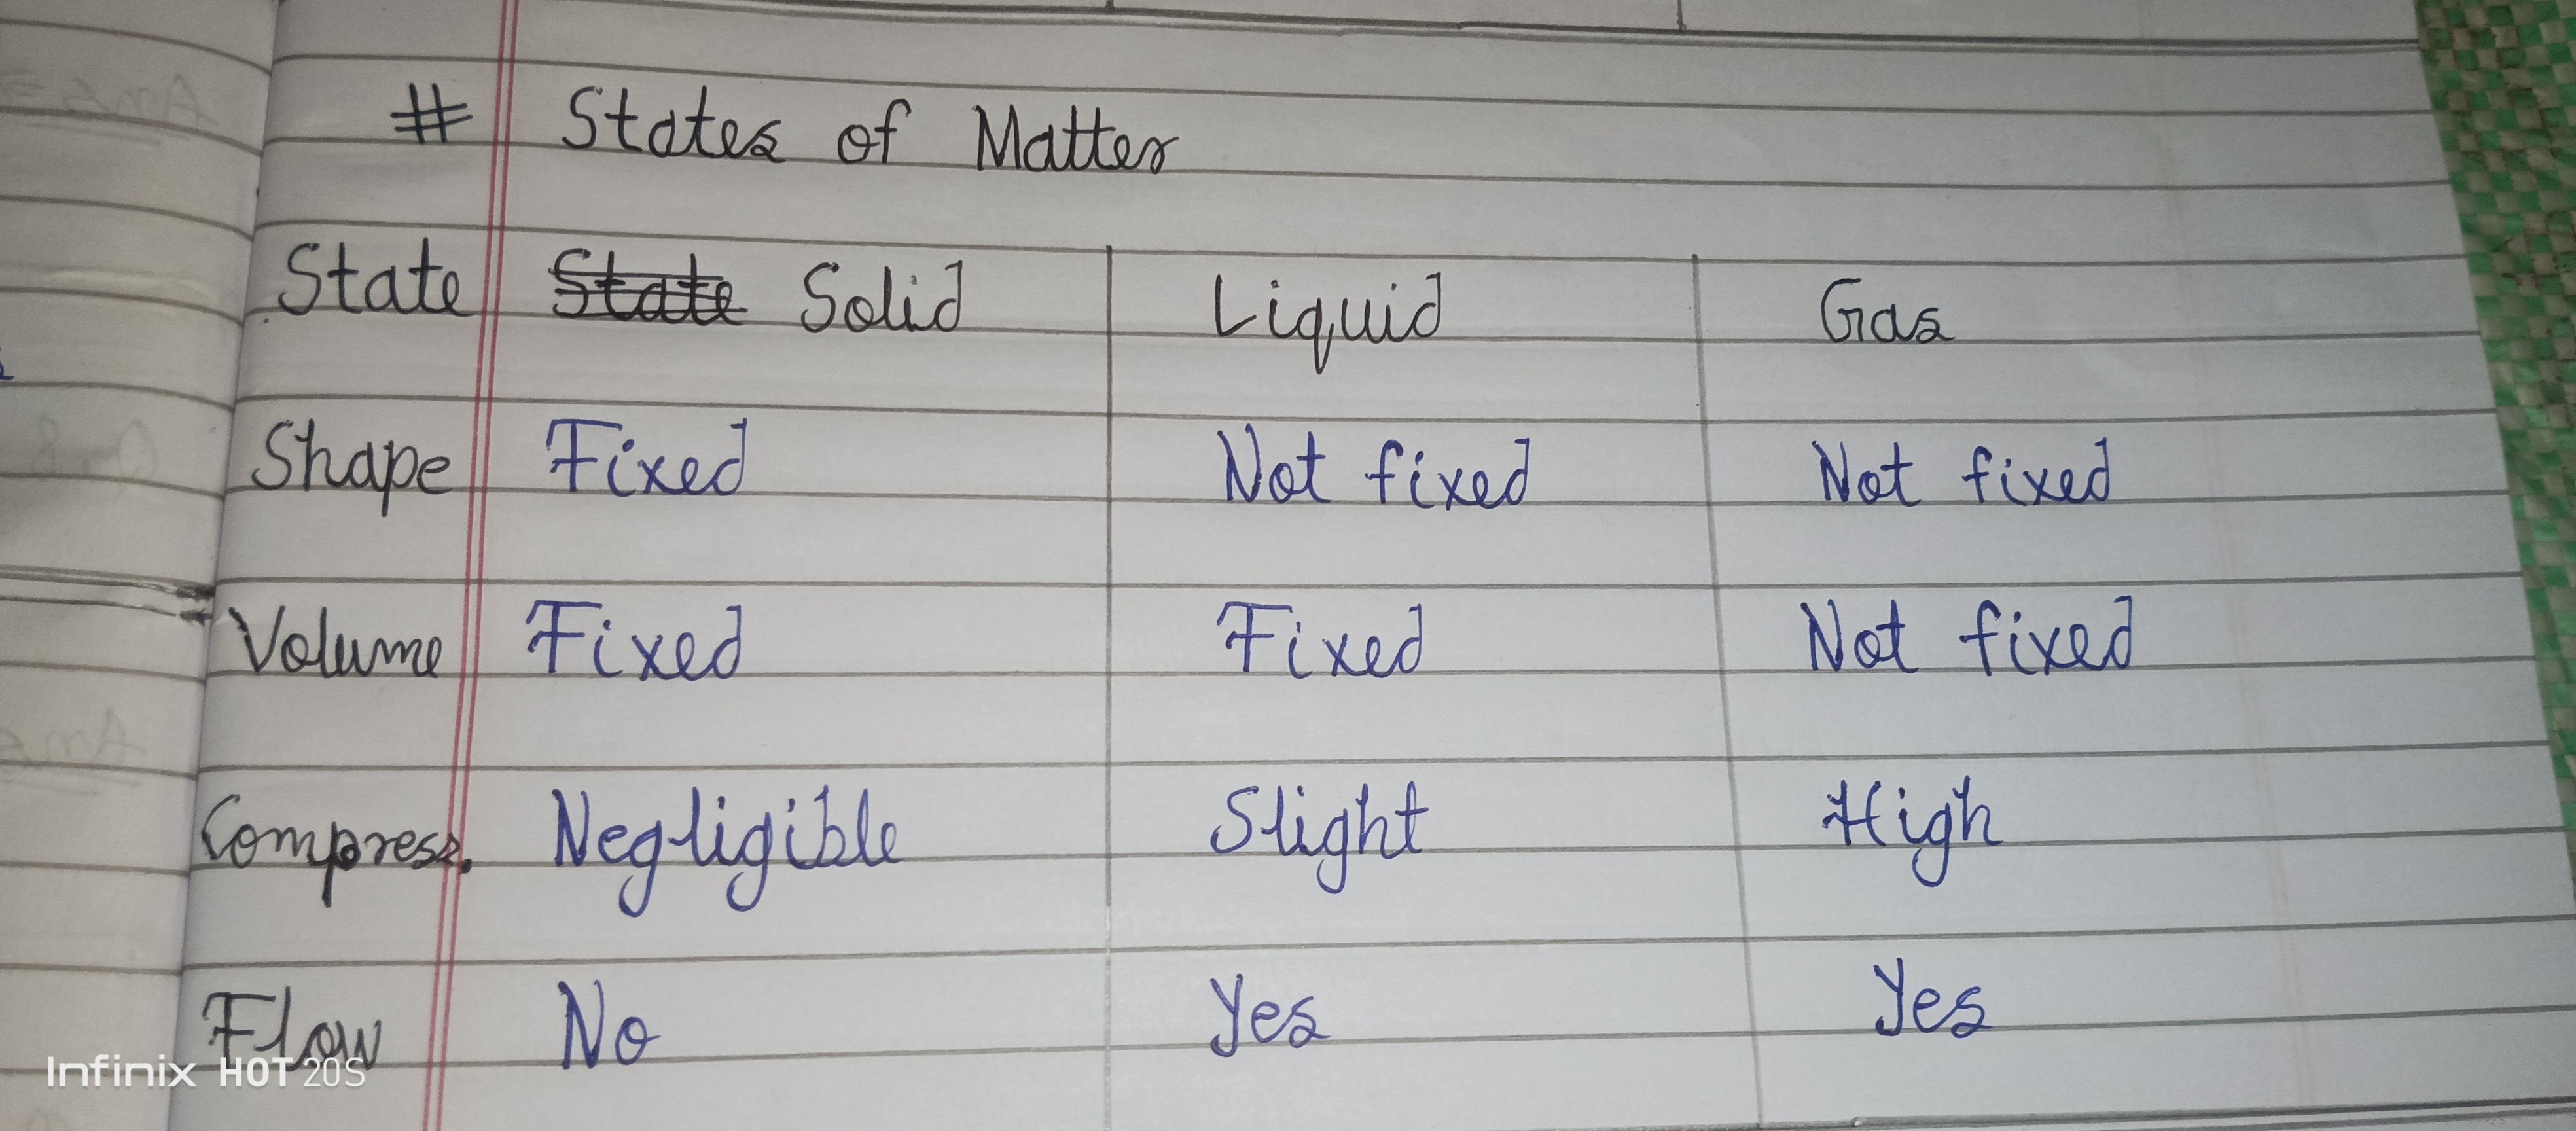 # States of Matter
State ~~State~~ Solid Liquid Gas
Shape Fixed Not fixed Not fixed
Volume Fixed Fixed Not fixed
Compress. Negligible Slight High
Flow No Yes Yes
Infinix HOT 20S